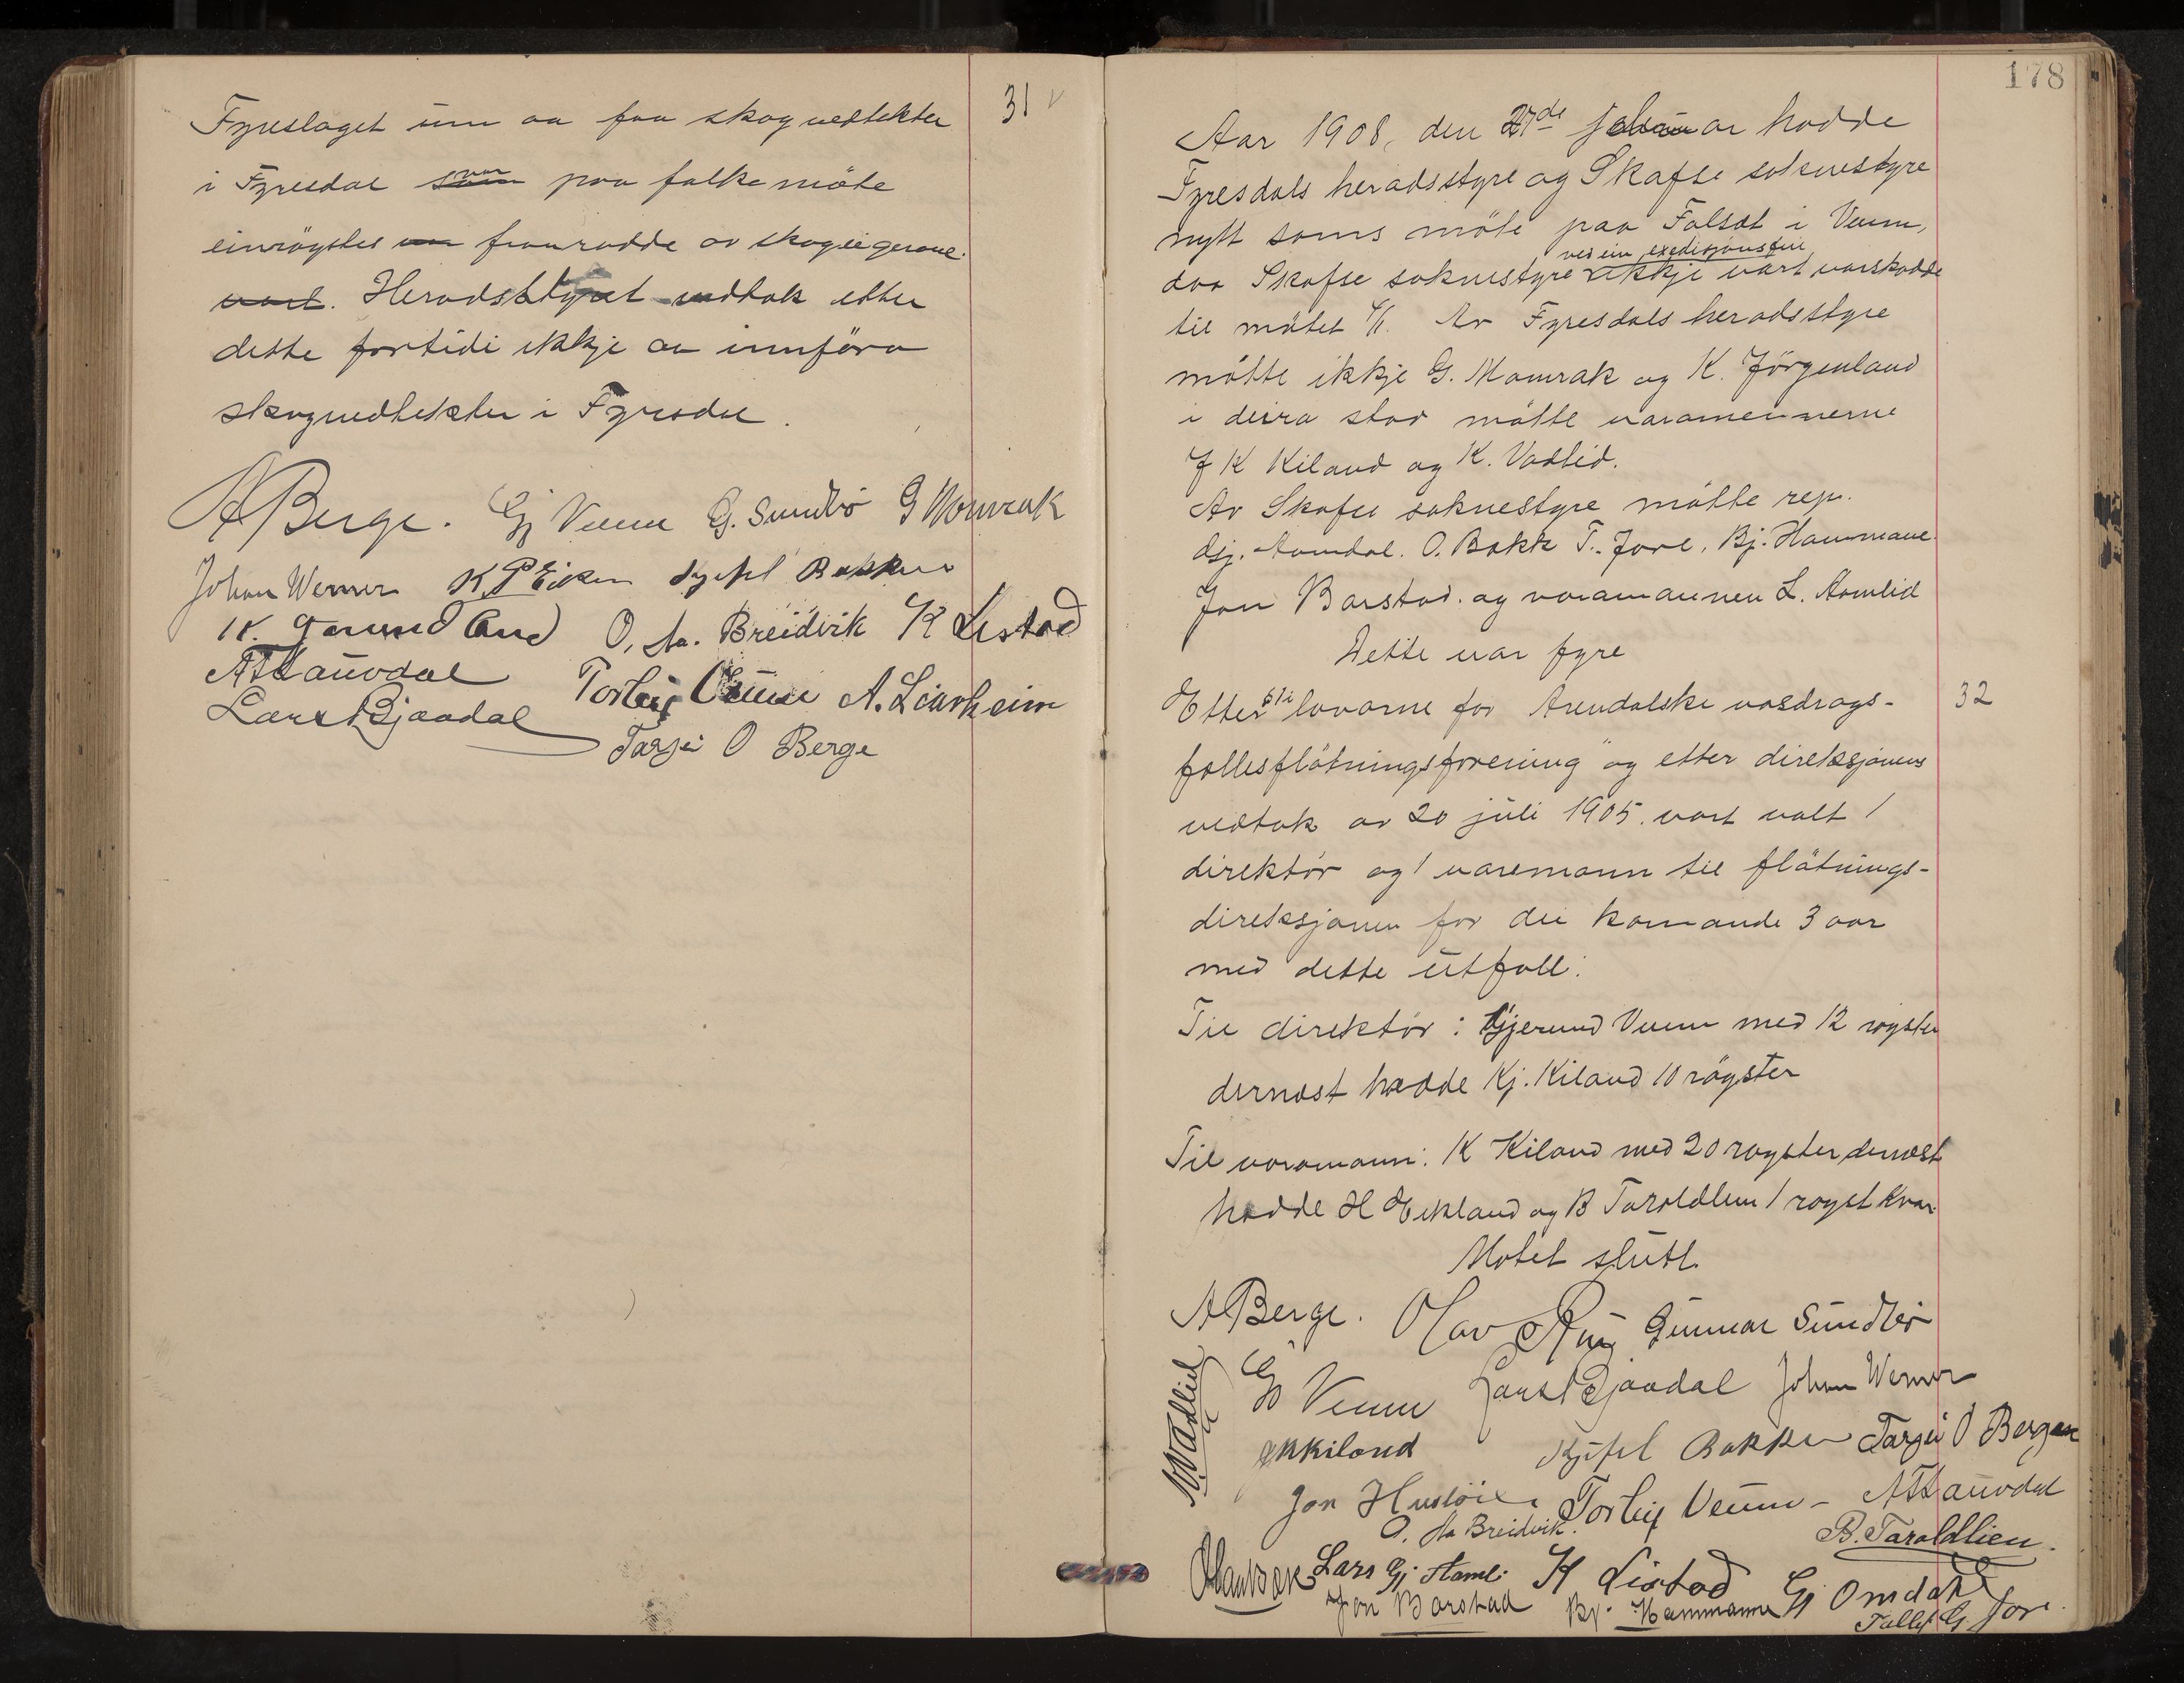 31
Fyreslaget um aa faa skogvedtekter
i Fyresdal var paa folkemöte
einröystes fraaraadde av skogeigerane.
Heradsstyret vedtok etter
dette fortidi ikkje aa innföra
skogvedtekter i Fyresdal.
A Berge. Gj Veum G. Sundbö G Momrak
Johan Werner K P Eiken Kjetil Bakken
K. O. Aa. Breidvik K Listod
A T Hauvdal Torleif Veum A. Leirheim
Lars Bjaadal
Tarjei O Berge
178
Aar 1908, den 27de februar hadde
Fyresdals heradsstyre og Skafse soknestyre
nytt sams möte paa Folsæt i Veum,
ved ein expedisjonsfeil
daa Skafse soknestyre ikkje vart varskodde
til mötet 4/1. Av Fyresdals heradsstyre
mötte ikkje G. Momrak og K. Jörgenland
i deira stad mötte varamennerne
J K Kiland og K. Vadlid.
Av Skafse soknestyre mötte rep.
Gj. Aamdal. O. Bakk T. Jore, Bj. Hammane
Jon Barstad. og varamannen L. Aamlid
Dette var fyre
32
Etter lovarne for Arendalske vasdrags-
fællesflötningsforening og etter direksjonens
vedtak av 20 juli 1905. vart valt 1
direktör og 1 varemann til flötnings-
direksjonen for dei komande 3 aar
med dette utfall:
Til direktör: Gjerund Veum med 12 röyster
dernæst hadde Kj. Kiland 10 röyster
Til varamann: K Kiland med 20 röyster dernæst
hadde H Eikland og B Taraldlien 1 röyst kvar.
Mötet slutt.
A Berge. Olav Gunnar Sundbö
K. Vadlid
Gj Veum Lars Bjaadal Johan Werner
J K Kiland Kjetil Bakken Tarjei O Bergan
Jon Torleif Veum - A T Hauvdal
O. Aa Breidvik. B. Taraldlien.
Olav Bak Lars Gj. Aamli K Listod Gj Omdahl
Jon Barstad Bj. Hammane Tallef G. Jore.